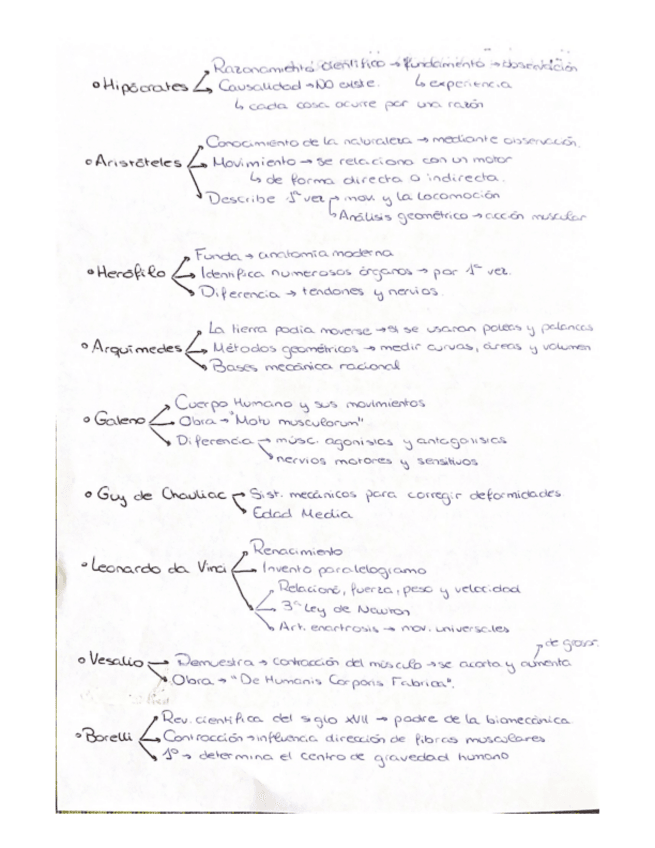 Razonamiento científico → fundamento → observación
• Hipócrates Causalidad → NO existe. ↳ experiencia
↳ cada cosa ocurre por una razón
Conocimiento de la naturaleza → mediante observación.
• Aristóteles Movimiento → se relaciona con un motor
↳ de forma directa o indirecta.
Describe 1ª vez → mov. y la locomoción
↳ Análisis geométrico → acción muscular
Funda → anatomía moderna
• Herófilo Identifica numerosos órganos → por 1ª vez.
Diferencia → tendones y nervios.
La tierra podía moverse → si se usaran poleas y palancas
• Arquímedes Métodos geométricos → medir curvas, áreas y volumen
Bases mecánica racional
Cuerpo Humano y sus movimientos
• Galeno Obra → "Motu musculorum"
Diferencia → músc. agonistas y antagonistas
nervios motores y sensitivos
• Guy de Chauliac Sist. mecánicos para corregir deformidades
Edad Media
Renacimiento
• Leonardo da Vinci Invento paralelogramo
Relacionó, fuerza, peso y velocidad
3ª Ley de Newton
Art. enartrosis → mov. universales
de grosor.
• Vesalio Demuestra → contracción del músculo → se acorta y aumenta
Obra → "De Humanis Corporis Fabrica".
Rev. científica del siglo XVII → padre de la biomecánica
• Borelli Contracción → influencia dirección de fibras musculares
1º → determina el centro de gravedad humano